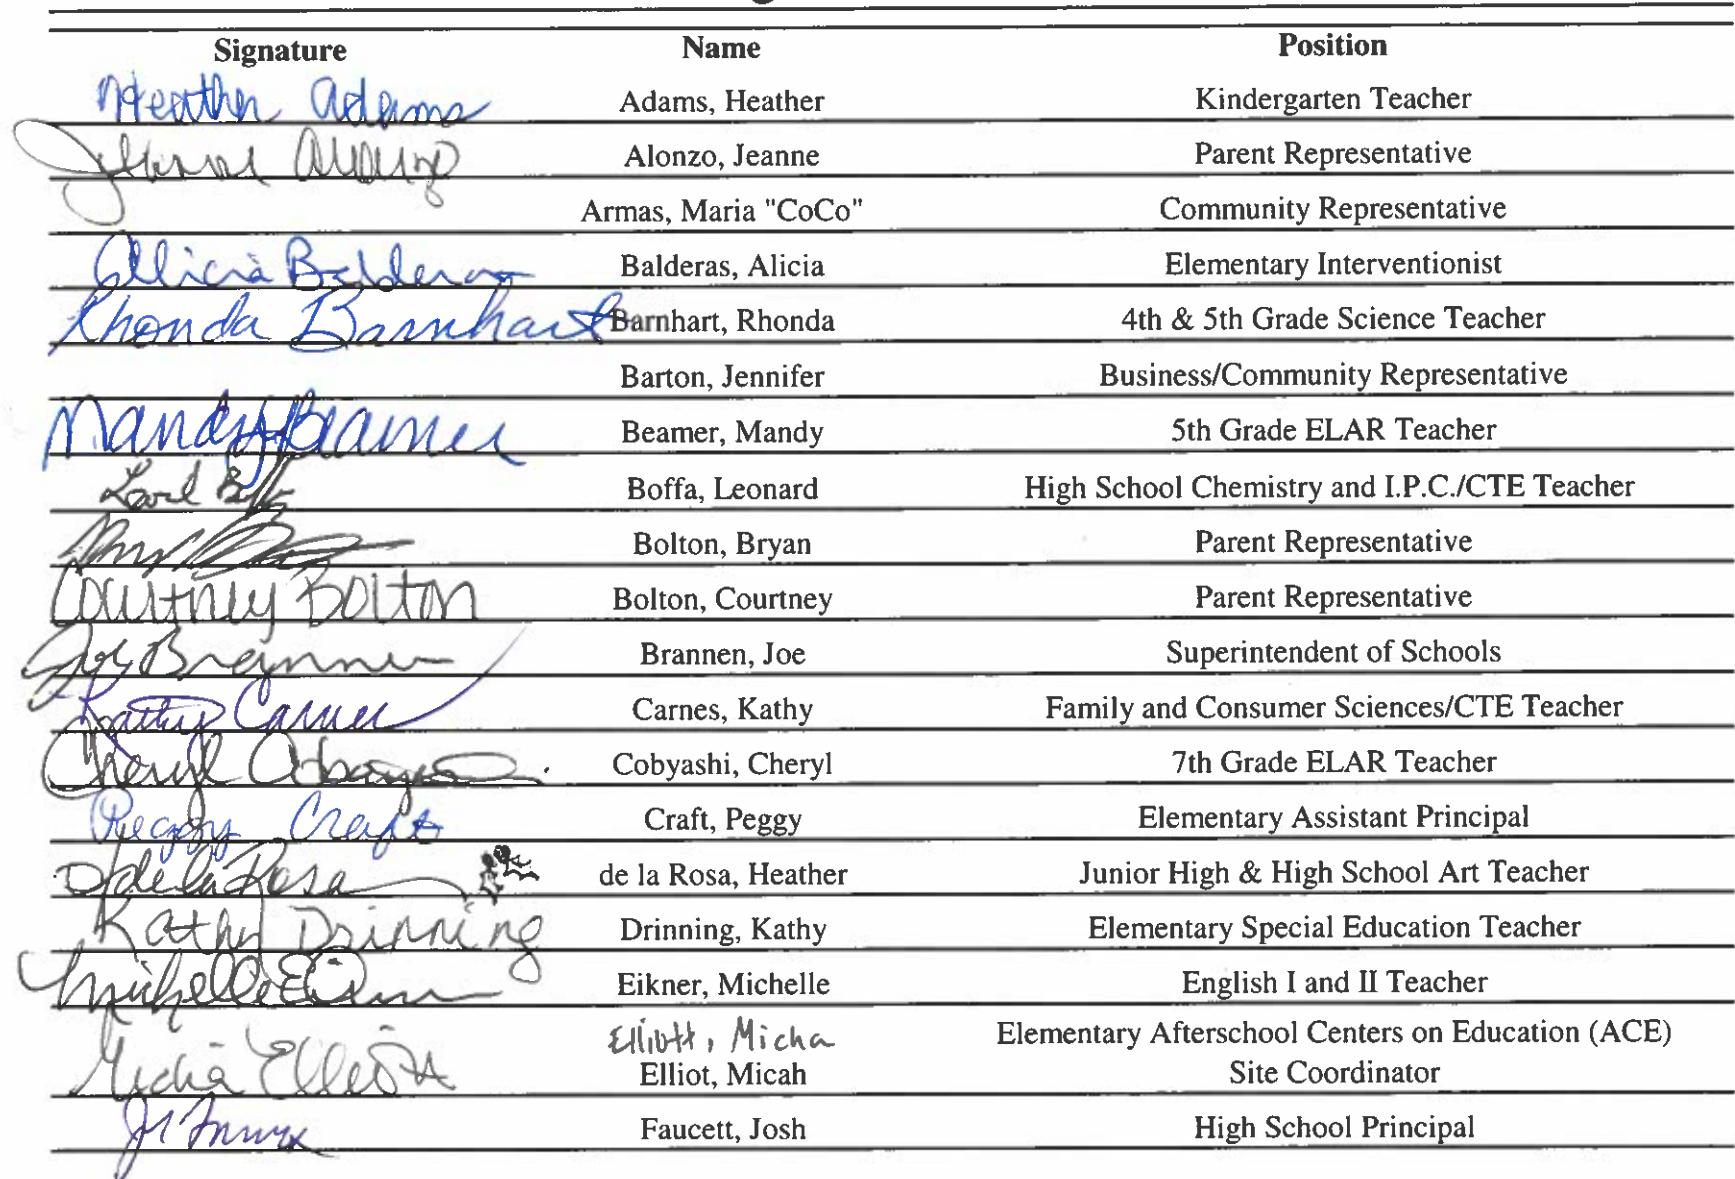 Signature Name Position
Heather Adams Adams, Heather Kindergarten Teacher
Jeanne Alonzo Alonzo, Jeanne Parent Representative
Armas, Maria "CoCo" Community Representative
Alicia Balderas Balderas, Alicia Elementary Interventionist
Rhonda Barnhart Barnhart, Rhonda 4th & 5th Grade Science Teacher
Barton, Jennifer Business/Community Representative
Mandy Beamer Beamer, Mandy 5th Grade ELAR Teacher
Boffa, Leonard High School Chemistry and I.P.C./CTE Teacher
Bolton, Bryan Parent Representative
Courtney Bolton Bolton, Courtney Parent Representative
Joe Brannen Brannen, Joe Superintendent of Schools
Kathy Carnes Carnes, Kathy Family and Consumer Sciences/CTE Teacher
Cheryl Cobyashi, Cheryl 7th Grade ELAR Teacher
Peggy Craft Craft, Peggy Elementary Assistant Principal
de la Rosa de la Rosa, Heather Junior High & High School Art Teacher
Kathy Drinning Drinning, Kathy Elementary Special Education Teacher
Michelle Eikner, Michelle English I and II Teacher
Elliott, Micha Elementary Afterschool Centers on Education (ACE)
Micha Elliott Elliot, Micah Site Coordinator
Faucett, Josh High School Principal